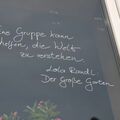 Eine Gruppe kann
helfen, die Welt
zu verstehen
Lola Randl
Der Große Garten